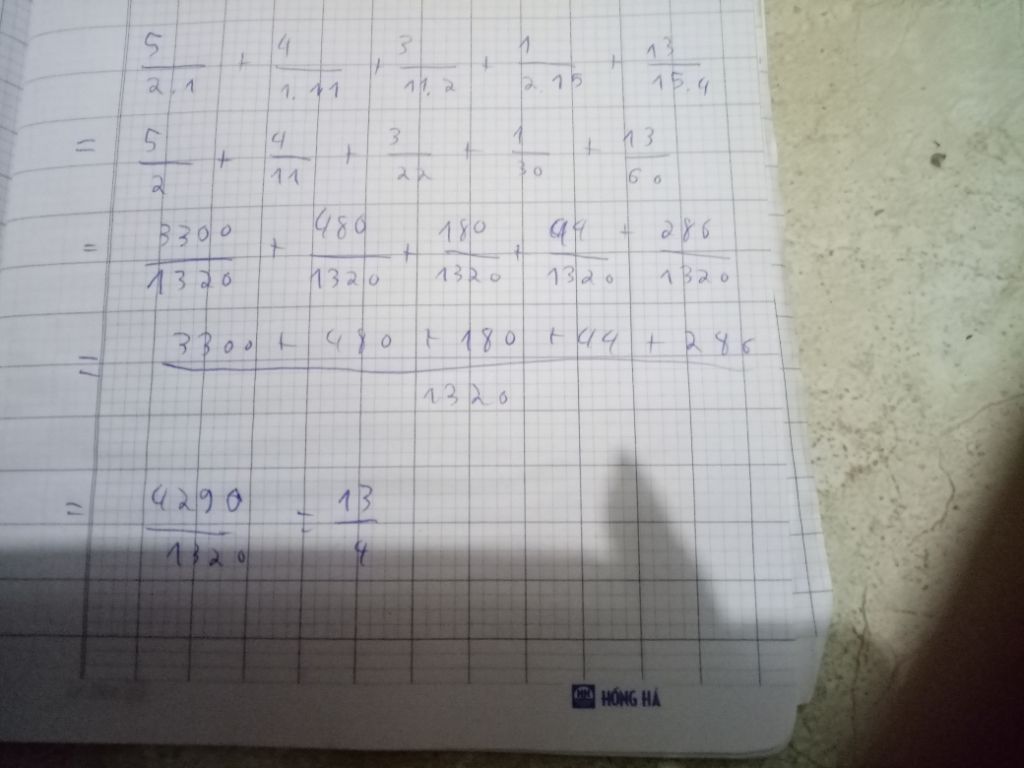 5/2.1 + 4/1.11 + 3/11.2 + 1/2.15 + 13/15.4
= 5/2 + 4/11 + 3/22 + 1/30 + 13/60
= 3300/1320 + 480/1320 + 180/1320 + 44/1320 + 286/1320
= 3300 + 480 + 180 + 44 + 286/1320
= 4290/1320 = 13/4
HỒNG HÀ